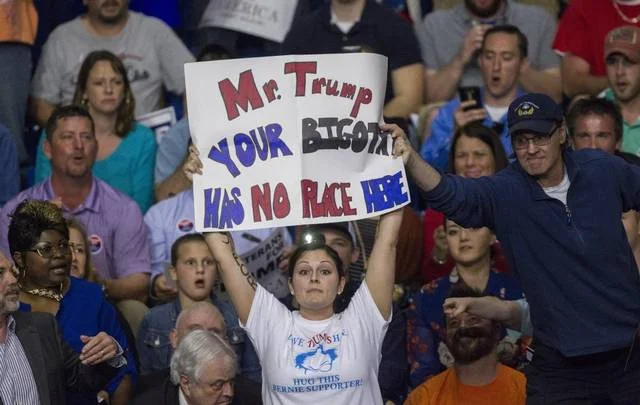 MERICA
Mr. Trump
YOUR BIGOT
HAS NO PLACE HERE
HUG THIS
BERNIE SUPPORTER!